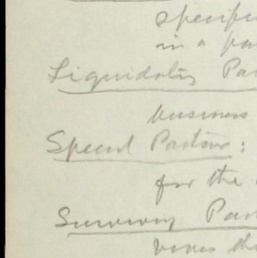 specifi
in a pa
Liquidating Par
business
Special Partner:
for the
Surviving Par
vives th